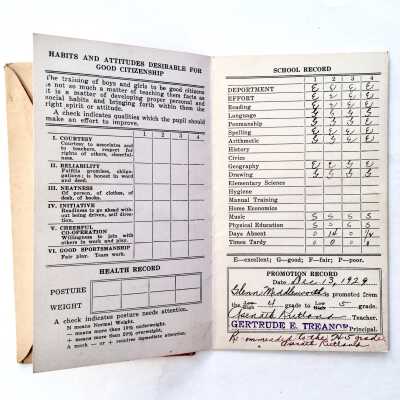 HABITS AND ATTITUDES DESIRABLE FOR
GOOD CITIZENSHIP
The training of boys and girls to be good citizens
is not so much a matter of teaching them facts as
it is a matter of developing proper personal and
social habits and bringing forth within them the
right spirit or attitude.
A check indicates qualities which the pupil should
make an effort to improve.
1 2 3 4
I. COURTESY
Courteous to associates and
to teachers, respect for
rights of others, cheerful-
ness.
II. RELIABILITY
Fulfills promises, obliga-
tions; is honest in word
and deed.
III. NEATNESS
Of person, of clothes, of
desk, of books.
IV. INITIATIVE
Readiness to go ahead with-
out being driven, self direc-
tion.
V. CHEERFUL
CO-OPERATION
Willingness to join with
others in work and play.
VI. GOOD SPORTSMANSHIP
Fair play. Team work.
HEALTH RECORD
POSTURE
WEIGHT
A check indicates posture needs attention.
N means Normal Weight.
— means more than 10% underweight.
+ means more than 20% overweight.
A much — or + requires immediate attention.
SCHOOL RECORD
1 2 3 4
DEPARTMENT
EFFORT
Reading
Language
Penmanship
Spelling
Arithmetic
History
Civics
Geography
Drawing
Elementary Science
Hygiene
Manual Training
Home Economics
Music S S S S
Physical Education S S S
Days Absent 0 14 0
Times Tardy 0 0 0
E—excellent; G—good; F—fair; P—poor.
PROMOTION RECORD
Date Dec. 13, 1929
Glenn Middlesworth is promoted from
the Low 4 grade to Low 5 grade.
Asenath Rutland Teacher.
GERTRUDE E. TREANOR Principal.
Recommended to the H-5 grade
Asenath Rutland